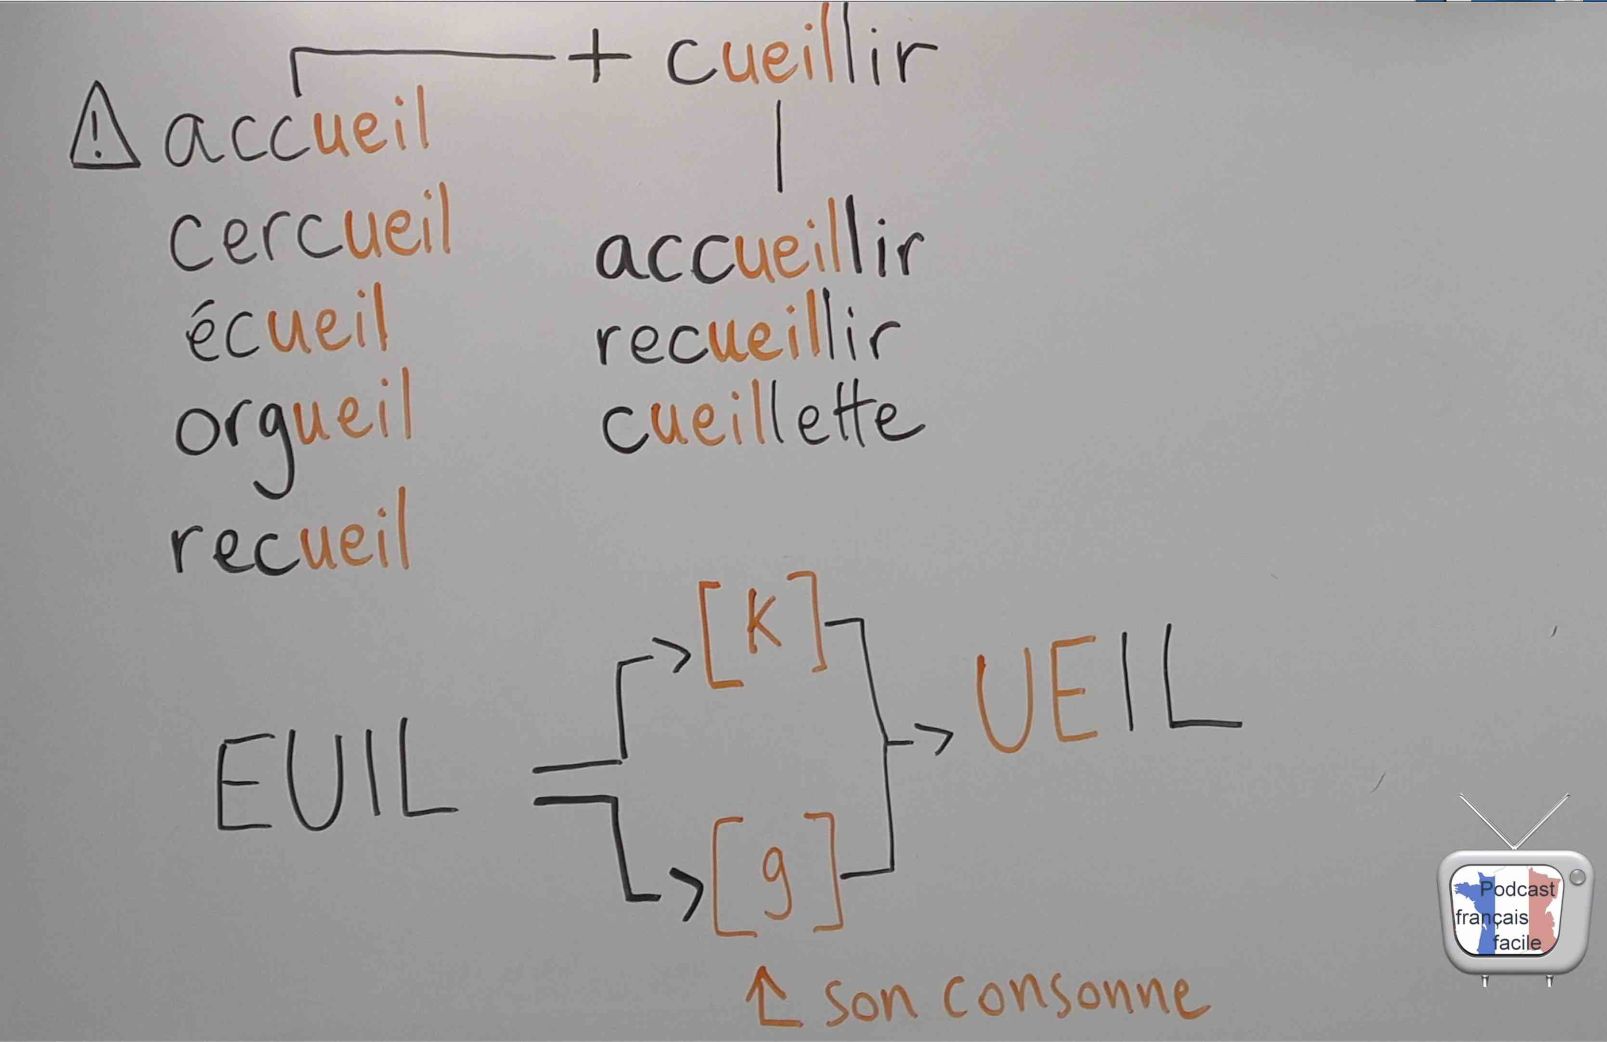 + cueillir
! accueil
cercueil
écueil
orgueil
recueil
accueillir
recueillir
cueillette
EUIL
[k]
[g]
UEIL
son consonne
Podcast
français
facile